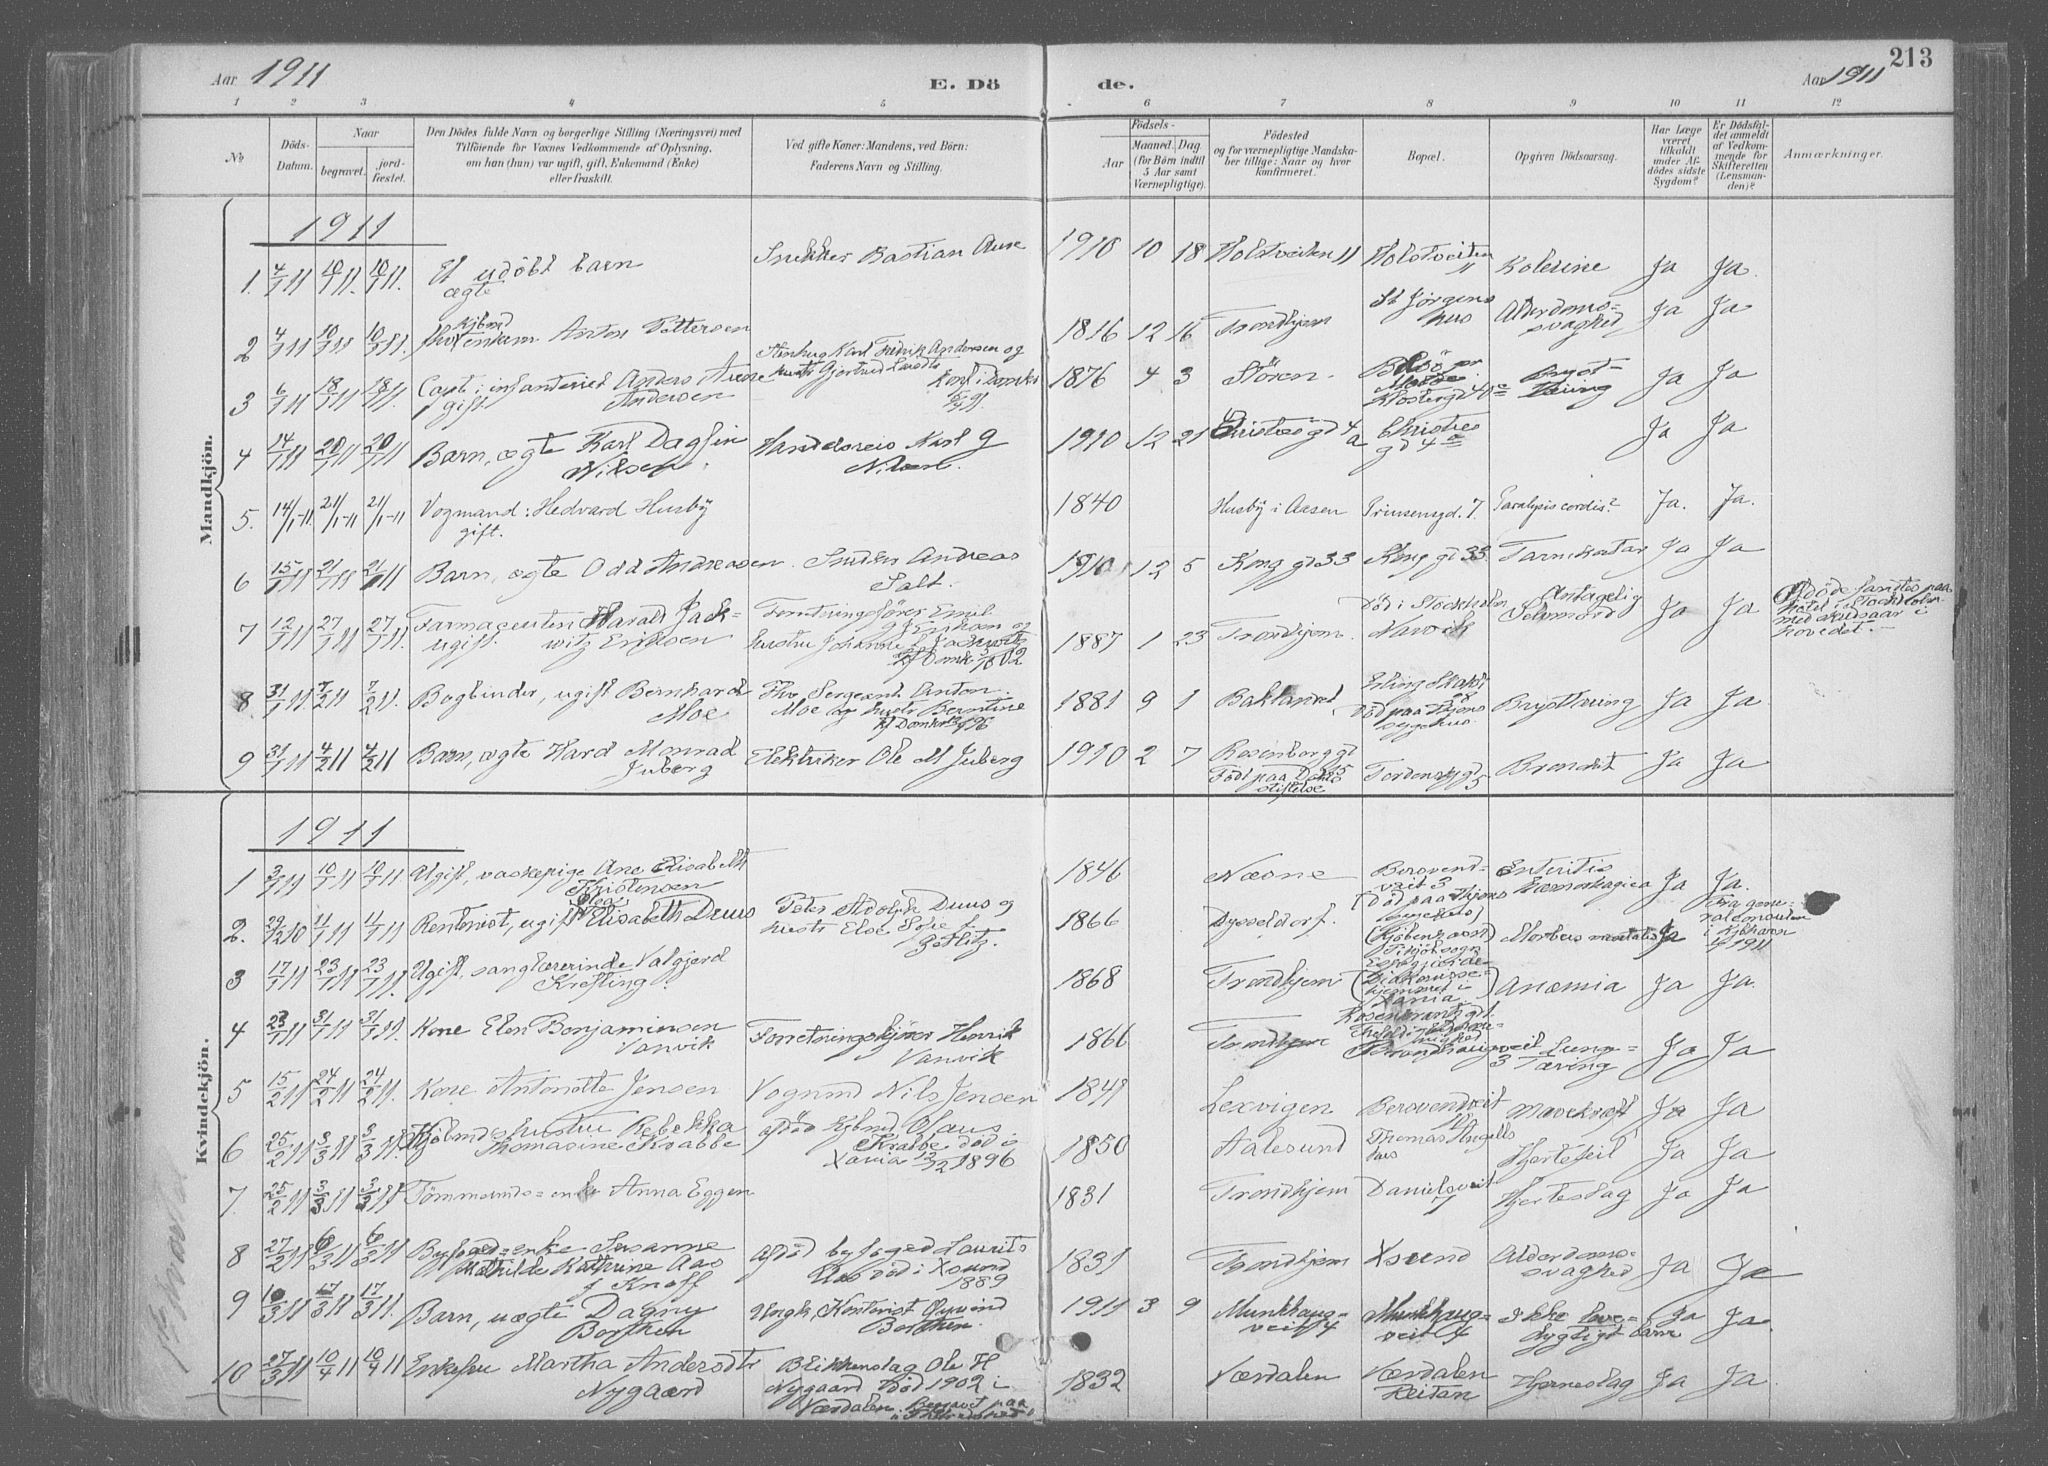 213
Aar 1911
E. Dö
de.
Aar 1911
1 2 3 4 5 6 7 8 9 10 11 12
No
Döds-Datum.
Naar
begravet.
jord-fæstet.
Den Dödes fulde Navn og borgerlige Stilling (Næringsvei) med
Tilföiende for Voxnes Vedkommende af Oplysning,
om han (hun) var ugift, gift, Enkemand (Enke)
eller fraskilt.
Ved gifte Koner: Mandens, ved Börn:
Faderens Navn og Stilling.
Födsels-
Aar
Maaned. Dag
(for Börn indtil
5 Aar samt
Værnepligtige).
Födested
og for værnepligtige Mandska-
ber tillige: Naar og hvor
konfirmeret.
Bopæl.
Opgiven Dödsaarsag.
Har Læge
været
tilkaldt
under Af-
dödes sidste
Sygdom?
Er Dödsfal-
det anmeldt
af Vedkom-
mende for
Skifteretten
(Lensman-
den)?
Anmærkninger.
Mandkjön.
1911
1. 4/1 11 10/1 11. 10/1 11. Et udöbt barn
ægte
Snekker Bastian Aune
1910 10 18 Holstveiten 11 Holstveiten
11 Kolerine Ja Ja.
2 4/1 11 10/1 11 10/1 11. Kjbmd
enkem. Anton Pettersen
1816 12 16 Trondhjem St Jörgens
hus Alderdoms=
svaghed Ja Ja
3 6/1 11 18/1 11 18/1 11 Capt. i infanteriet Anders Aune
gift Andersen
Karl Fredrik Andersen og
hustr Gjertrud Larsdtr
Konf i Domk
1876 4 3 Stören.
Klostergd 40
Bryst-
tæring Ja Ja
4 14/1 11 20/1 11 20/1 11 Barn, ægte Karl Dagfin
Nilsen.
Handelsreis Karl G
Nilsen.
1910 12 21 Christiesgd 4
a Christies
gd 4 a Ja Ja
5. 14/1-11 21/1-11 21/1-11 Vognmand: Hedvard Husby
gift.
1840 Husby i Aasen Prinsensgd. 7. Paralysis cordis? Ja. Ja.
6 15/1 11 21/1 11 21/1 11 Barn, ægte Odd Andreasen.
Snidker Andreas
Salt.
1910 12 5 Kong gd 33 Kong gd 33 Tarmkatar Ja Ja
7 12/1 11 27/1 11 27/1 11. Farmaceuten Harald Jack-
ugift. witz Eriksen
Forretningsförer Emil
Eriksen og
hustru Johanne Jackwitz
Kf Domk 1902
1887 1 23 Trondhjem. Död i Stockholm
Narvik Antagelig
Selvmord Ja Ja
död fandtes paa
hotel i Stockholm
med skudsaar i
hovedet.
8 31/1 11. 7/2 11 7/2 11. Bogbinder, ugift Bernhard
Moe
Fhv Sergeant Anton
Moe og hustr Berntine
Kf Domk 1896
1881 9 1 Baklandet Erling Skakk
28
Död paa Thjems
sygehus. Brysttæring Ja Ja
9 31/1 11 4/2 11 4/2 11 Barn, ægte Hard Monrad
Juberg
Elektriker Ole M Juberg
1910 2 7 Rosenborg gd
Födt paa
stiftelse Tordenskjgd
5 Bronchit Ja Ja
Kvindekjön.
1911
1 3/1 11 10/1 11 10/1 11 Ugift, vaskepige Ane Elisabeth
Kristensen
1846 Næsne Bersvend-
veit 3
(Död paa Thjems
sygehus) Enteritis
hæmorrhagica Ja Ja.
2. 29/12 10 11/1 11 11/1 11 Rentenist, ugift Elisabeth Duus
Peter Adolph Duus og
hustr Else Sofie f.
Götlitz.
1866 Dysseldorf. (Kjöbenhavn) Morbus mentalis Ja
Fra gene-
ralconsulen
i Kjöbhavn
1911
3 17/1 11 23/1 11 23/1 11. Ugift, sanglærerinde Valgjerd
Krefting.
1868 Trondhjem (Diakonisse-
hjemmet i
Xania.) Anæmia Ja Ja.
4 23/1 11 31/1 11 31/1 11. Kone Elen Benjaminsen
Vanvik
Forretningsförer Henrik
Vanvik
1866 Trondhjem
3 Lunge=
tæring Ja Ja
5 15/2 11 24/2 11 24/2 11. Kone Antonette Jensen
Vognmd Nils Jensen
1841 Lexvigen Bersvendveit Mavekræft Ja Ja
6 25/2 11 3/3 11 3/3 11. Kjöbmds hustru Rebekka
Thomasine Krabbe
afdöd Kjbmd Olaus
Krabbe död i
Xania 12/12 1896
1850 Aalesund Thomas Angells
hus Hjertefeil Ja Ja
7. 25/2 11 3/3 11 3/3 11 Tömmermds=enke Anna Eggen
1831 Trondhjem Danielsveit
7 Hjerteslag Ja Ja
8 27/2 11 6/3 11 6/3 11 Byfoged=enke Susanne
Mathilde Kathrine Aas
f Knoff
afdöd byfoged Laurits
Aas död i Xsund
1889
1831 Trondhjem Xsund Alderdoms=
svaghed Ja Ja
9 10/3 11 17/3 11 17/3 11. Barn, uægte Dagny
Borthen
Ungk, Kontorist Öyvind
Borthen.
1911 3 9 Munkhaug=
veit 4 Munkhaug=
veit 4 Ikke leve=
dygtigt barn Ja Ja.
10 27/3 11 10/4 11 10/4 11 Enkefru Martha Andersdtr
Nygaard
Blikkenslag Ole H
Nygaard död 1902 i
Værdalen. Begravet paa
1832 Værdalen Værdalen
Reitan Hjerneslag Ja Ja.